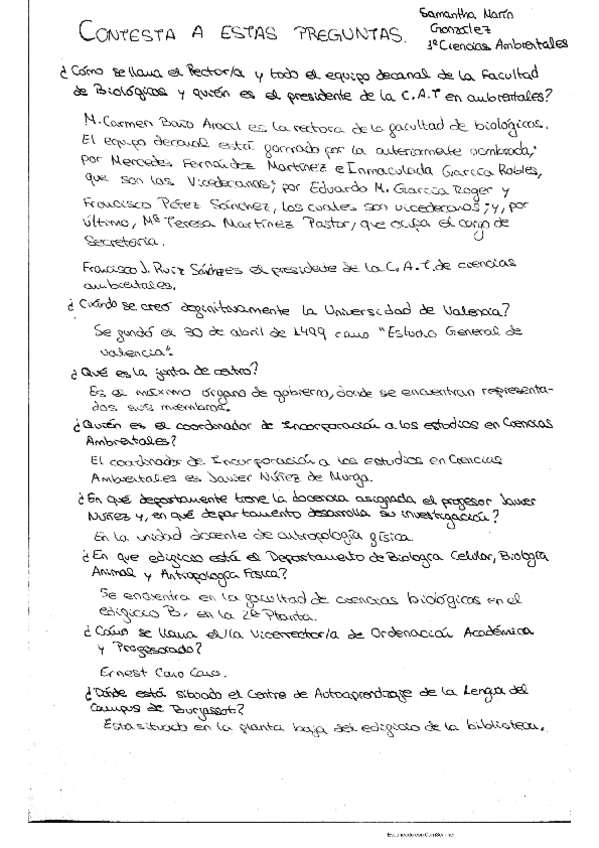 Samantha Marín
González
1º Ciencias Ambientales
CONTESTA A ESTAS PREGUNTAS.
¿Cómo se llama el Rector/a y todo el equipo decanal de la Facultad
de Biológicas y quién es el presidente de la C.A.T en ambientales?
M. Carmen Baño Aracil es la rectora de la facultad de biológicas.
El equipo decanal está formado por la anteriormente nombrada;
por Mercedes Fernández Martínez e Inmaculada García Robles,
que son las Vicedecanas; por Eduardo M. García Roger y
Francisco Pérez Sánchez, los cuales son vicedecanos; y, por
último, Mª Teresa Martínez Pastor, que ocupa el cargo de
Secretaria.
Francisco J. Ruiz Sánchez el presidente de la C.A.T. de ciencias
ambientales.
¿Cuándo se creó definitivamente la Universidad de Valencia?
Se fundó el 30 de abril de 1499 como "Estudio General de
Valencia".
¿Qué es la junta de centro?
Es el máximo órgano de gobierno, donde se encuentran representa-
dos sus miembros.
¿Quién es el coordinador de Incorporación a los estudios en Ciencias
Ambientales?
El coordinador de Incorporación a los estudios en Ciencias
Ambientales es Javier Núñez de Murga.
¿En qué departamento tiene la docencia asignada el profesor Javier
Núñez y, en qué departamento desarrolla su investigación?
En la unidad docente de antropología física.
¿En que edificio está el Departamento de Biología Celular, Biología
Animal y Antropología Física?
Se encuentra en la facultad de ciencias biológicas en el
edificio B, en la 2ª Planta.
¿Cómo se llama el/la Vicerrector/a de Ordenación Académica
y Profesorado?
Ernest Cano Cano.
¿Dónde está situado el Centre de Autoaprendizaje de la Lengua del
Campus de Burjassot?
Esta situado en la planta baja del edificio de la biblioteca.
Escaneado con CamScanner